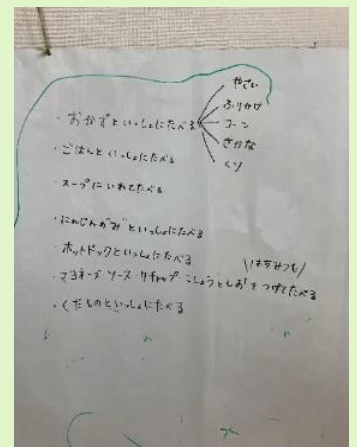 ・おかずといっしょにたべる
やさい
ふりかけ
コーン
さかな
くり
・ごはんといっしょにたべる
・スープにいれてたべる
・にんじんがみといっしょにたべる
・ホットドックといっしょにたべる
\はちみつも/
・マヨネーズ・ソース・ケチャップ・こしょうとしお をつけてたべる
・くだものといっしょにたべる